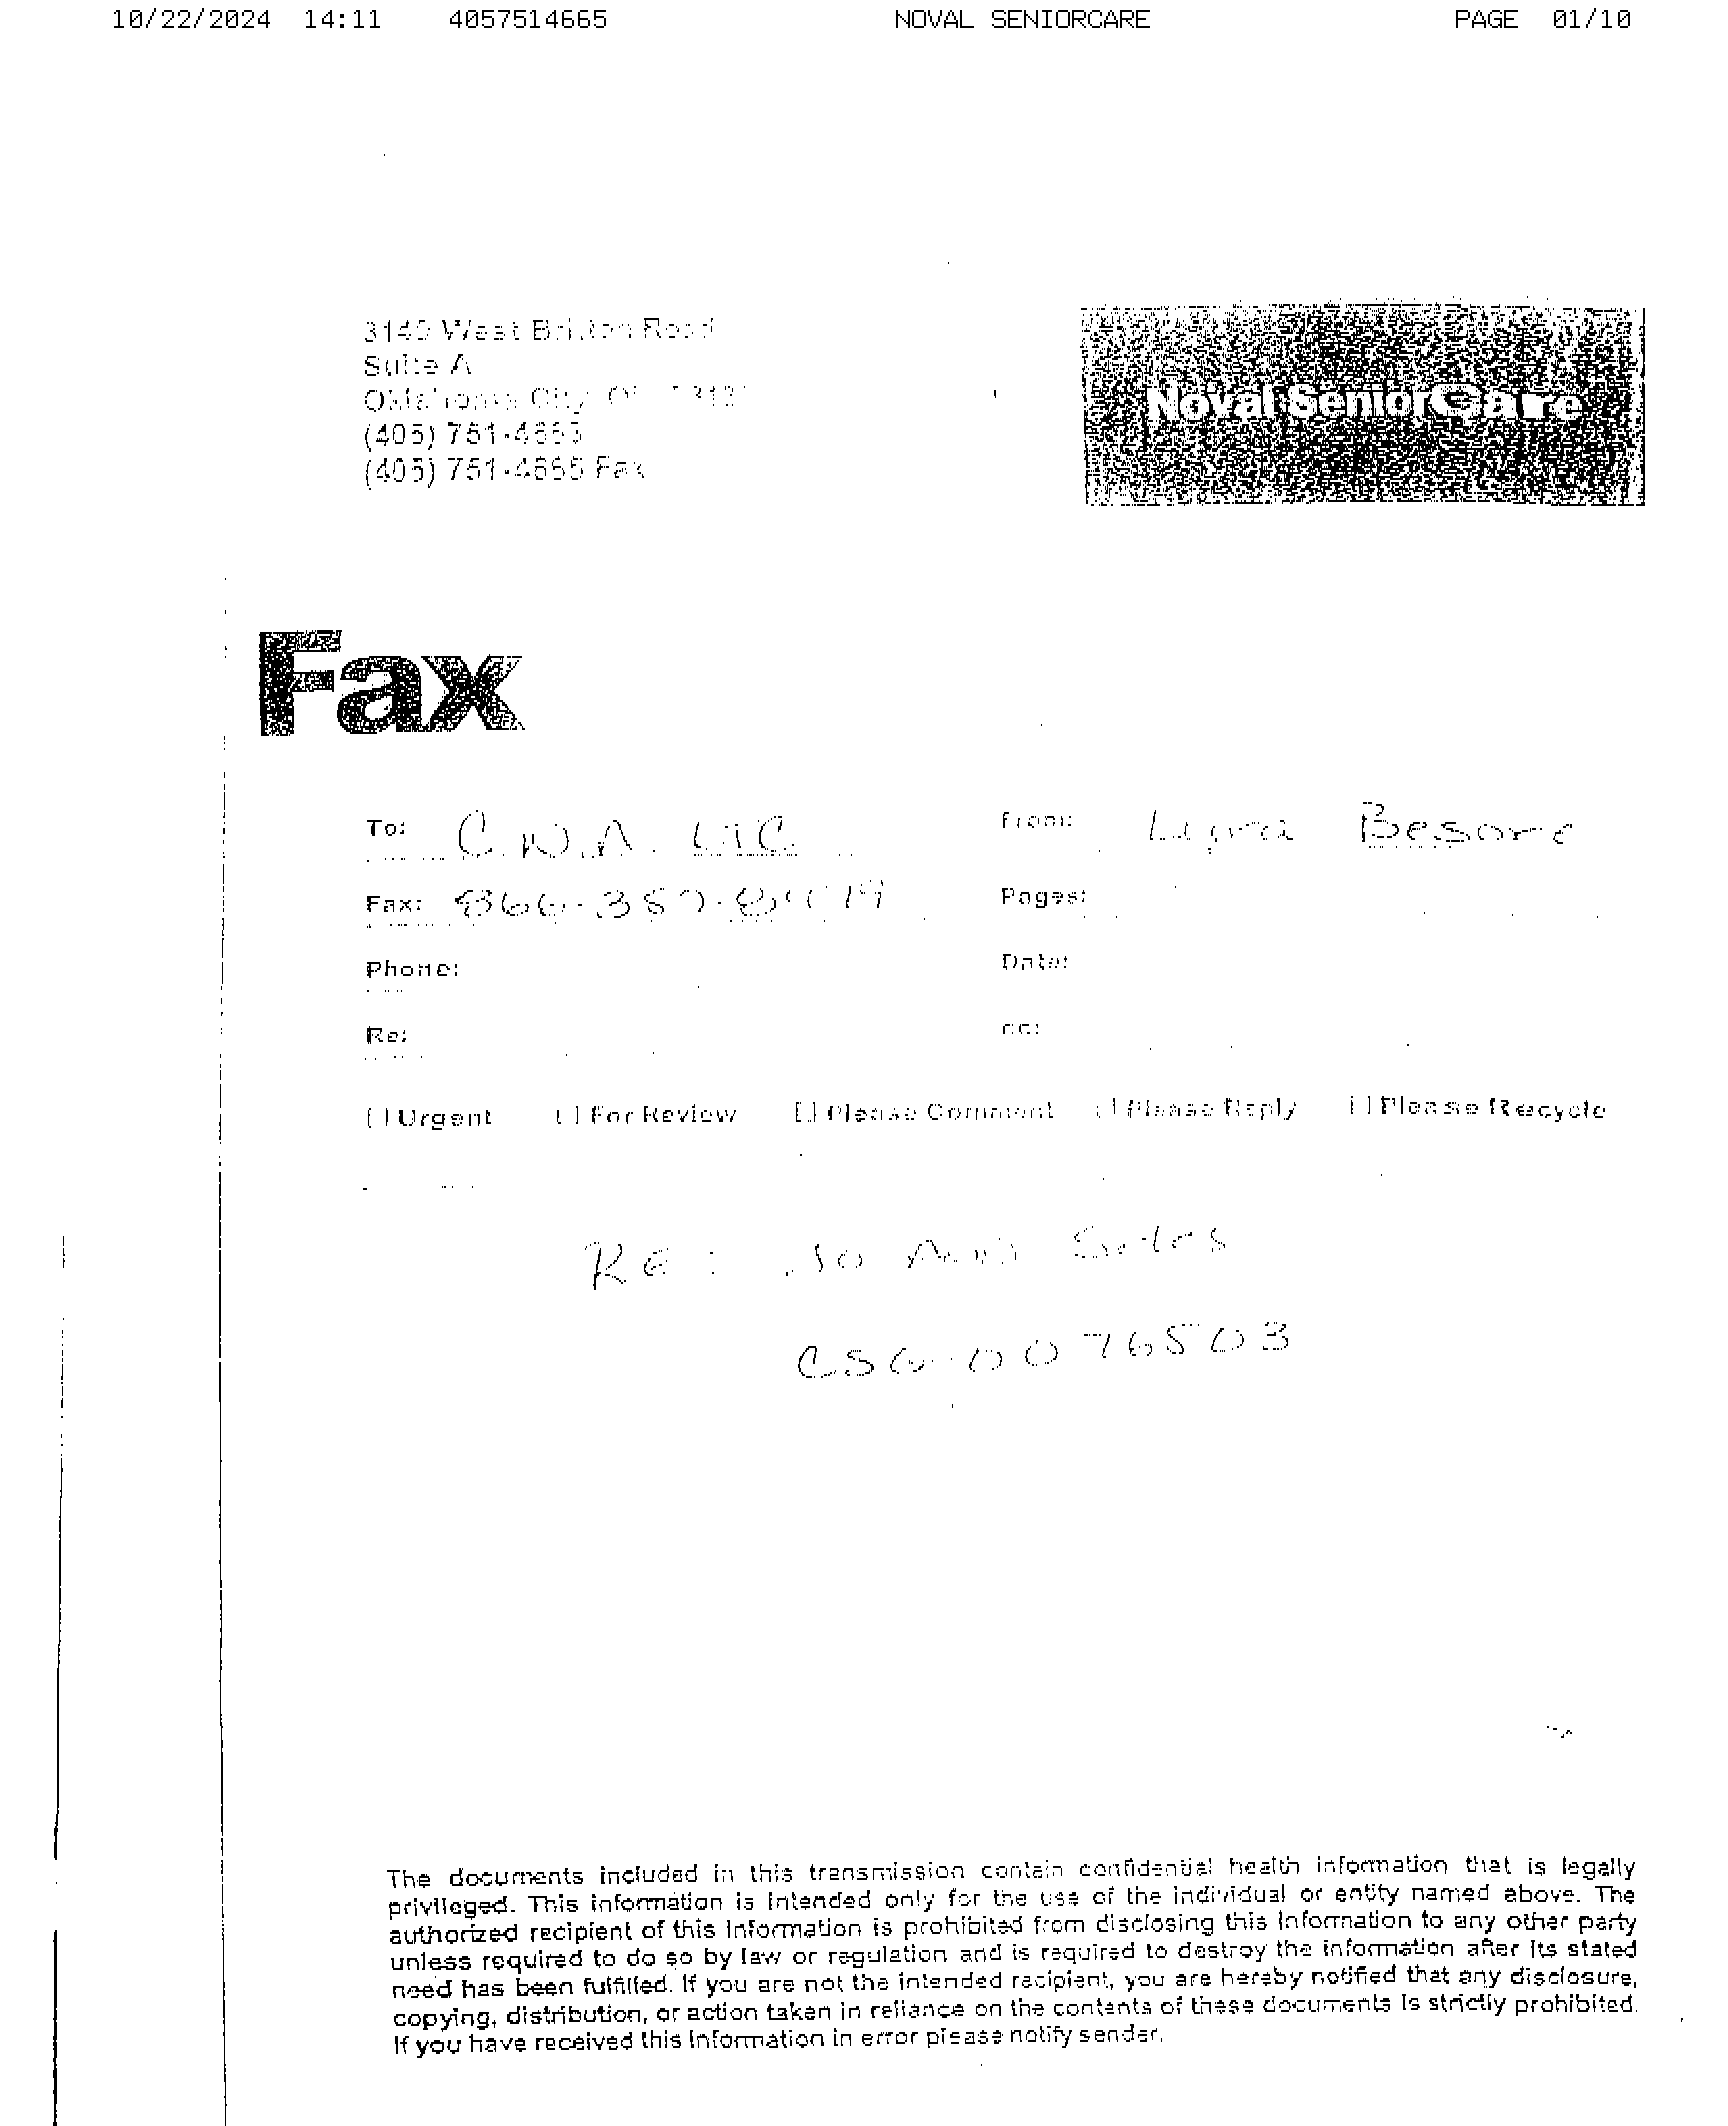 10/22/2024 14:11 4057514665 NOVAL SENIORCARE PAGE 01/10
3140 West Britton Road
Suite A
Oklahoma City,
(405) 751-4663
(405) 751-4665 Fax
Noval SeniorCare
Fax
To: C.N.A. LTC From: Besore
Fax: 866- Pages:
Phone: Date:
Re: cc:
[ ] Urgent [ ] For Review [ ] Please Comment [ ] Please Reply [ ] Please Recycle
RE: Jo Ann
0076503
The documents included in this transmission contain confidential health information that is legally
privileged. This information is intended only for the use of the individual or entity named above. The
authorized recipient of this information is prohibited from disclosing this information to any other party
unless required to do so by law or regulation and is required to destroy the information after its stated
need has been fulfilled. If you are not the intended recipient, you are hereby notified that any disclosure,
copying, distribution, or action taken in reliance on the contents of these documents is strictly prohibited.
If you have received this information in error please notify sender.